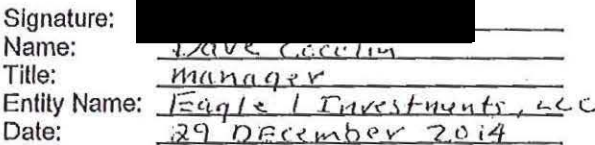 Signature:
Name: Dave
Title: manager
Entity Name: Eagle I Investments, LLC
Date: 29 DECember 2014